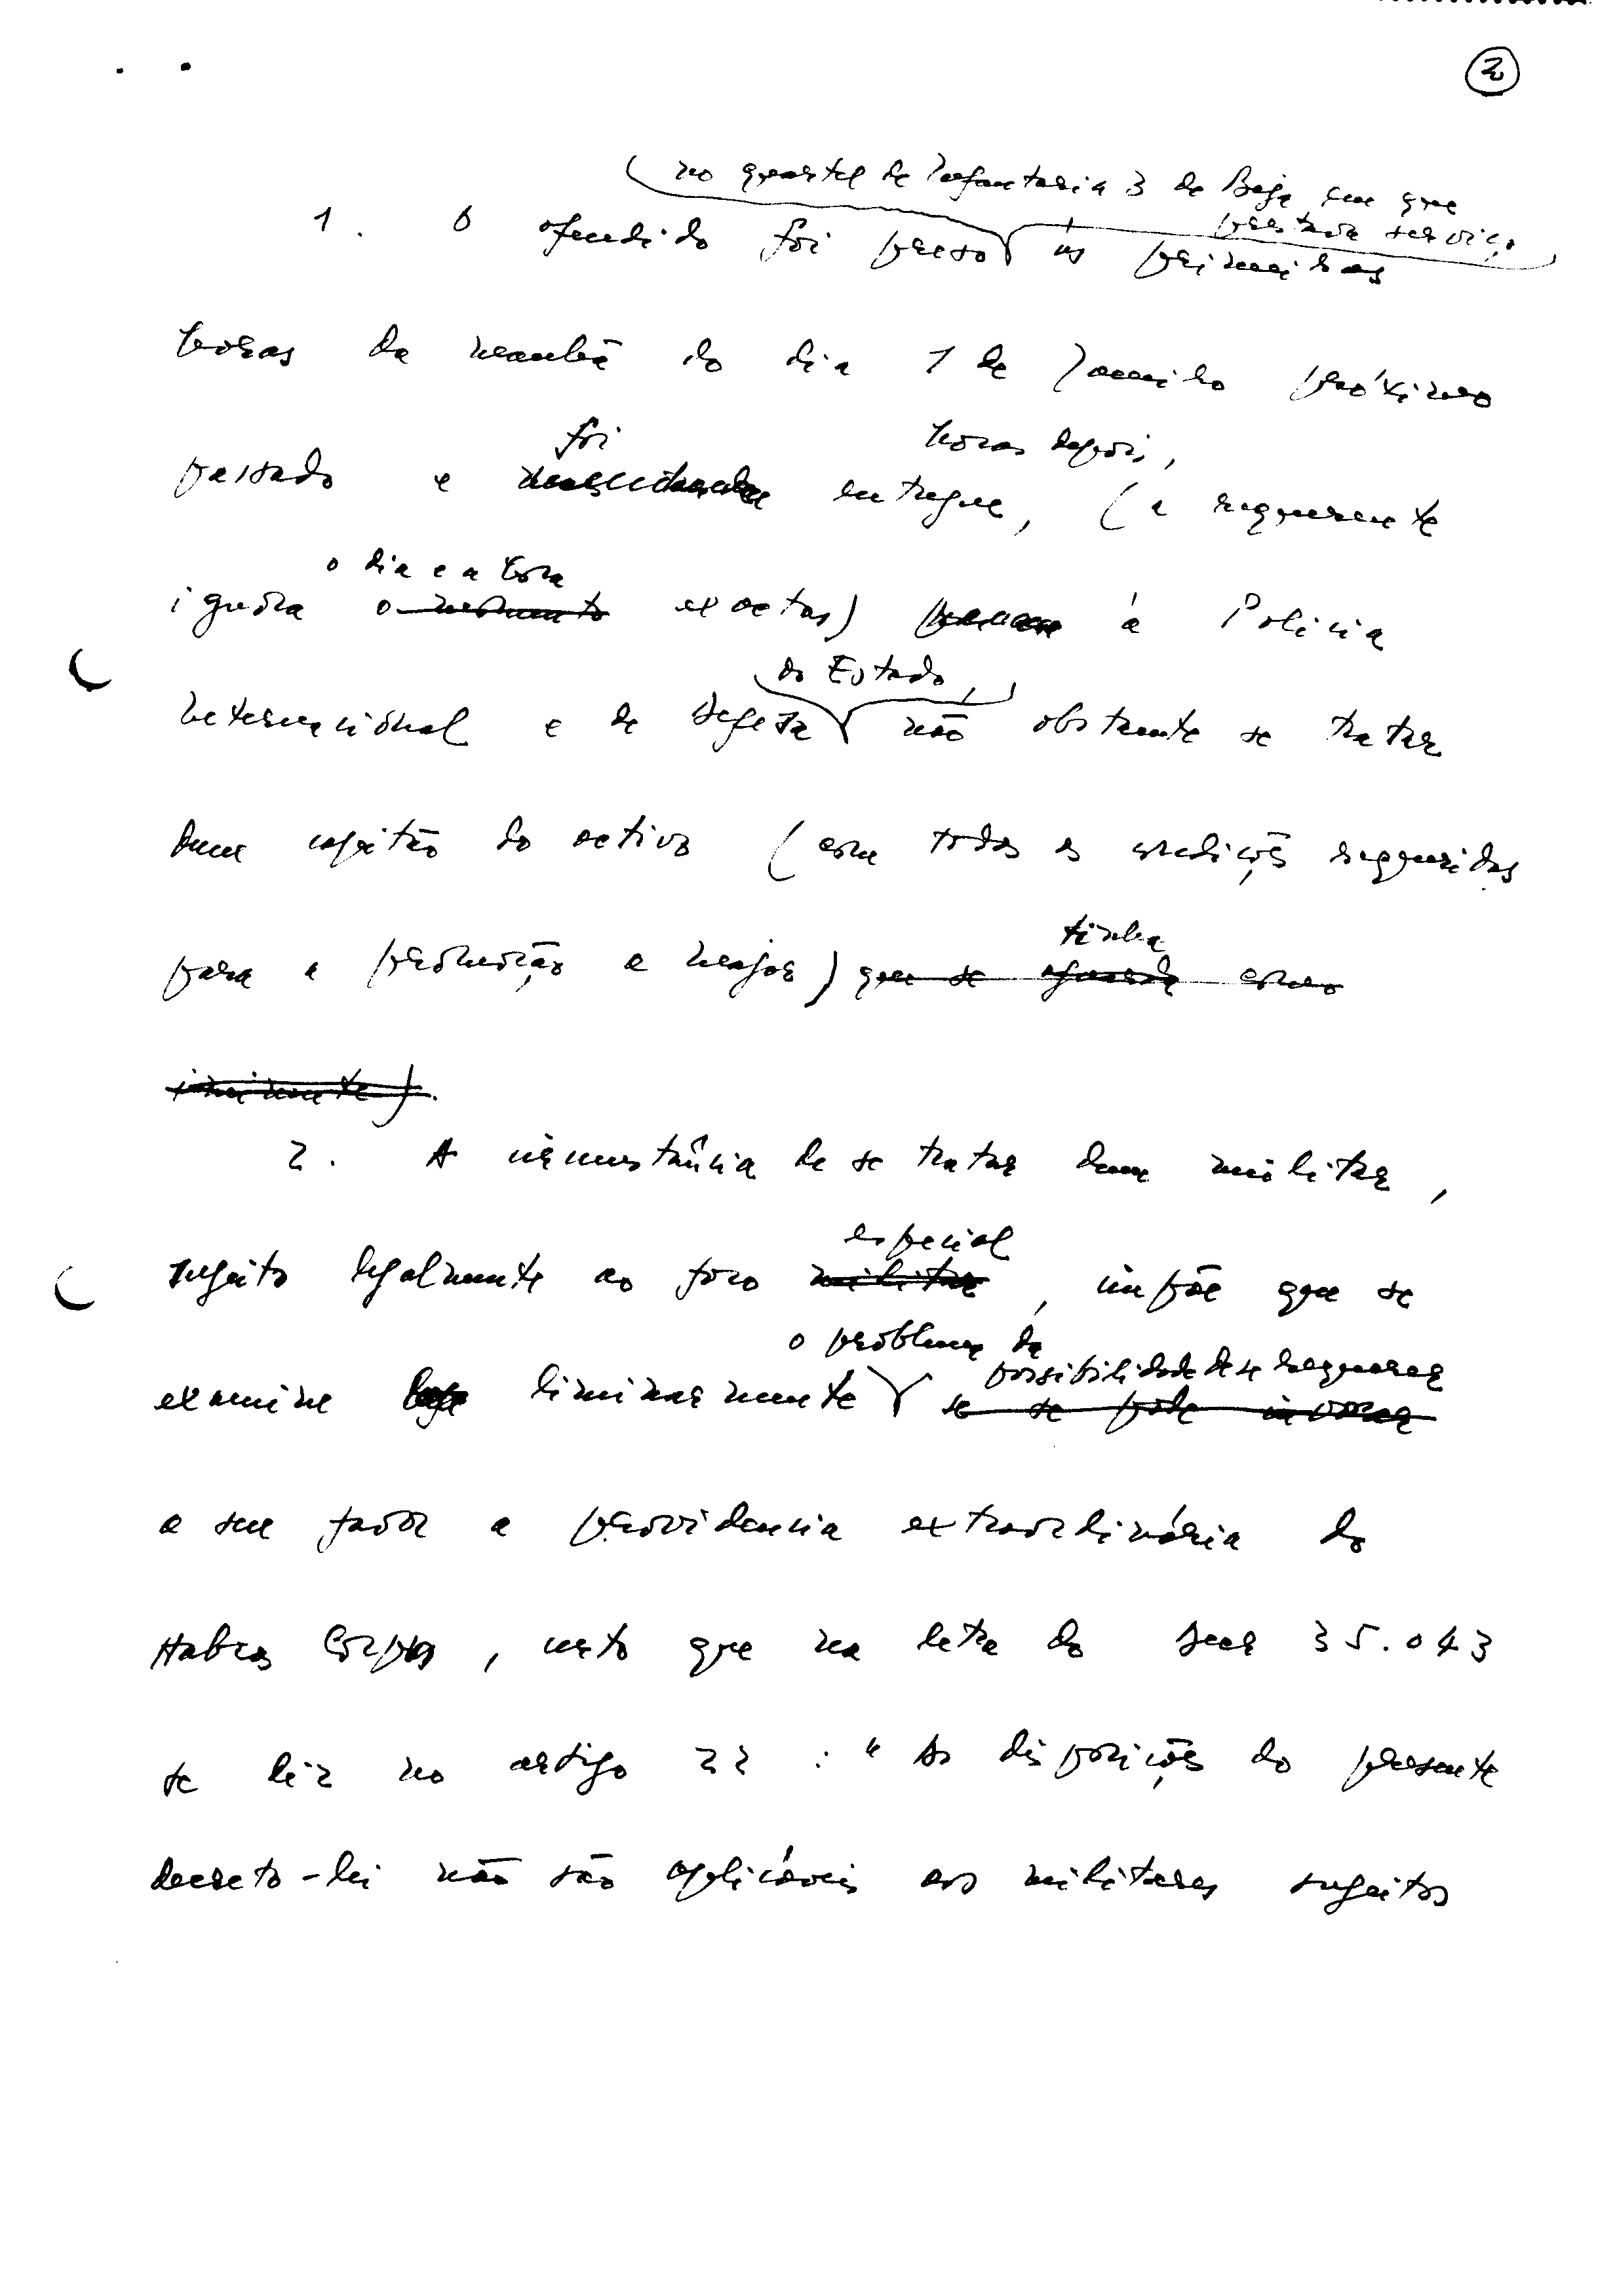 2
no quartel de Infantaria 3 de Beja em que
prestava serviço
1. O ofendido foi preso às primeiras
horas da manhã do dia 1 de Janeiro próximo
foi horas depois,
passado e entregue, (a requerente
o dia e a hora
ignora o momento exactos) à Polícia
do Estado,
Internacional e de Defesa não obstante se tratar
dum capitão do activo (com todas as condições requeridas
tinha
para a promoção a major) que se aguarda como
iminente).
2. A circunstância de se tratar dum militar,
especial
sujeito legalmente ao foro militar, impõe que se
o problema da
possibilidade de se requerer
examine liminarmente se se pode invocar
a seu favor a providencia extraordinária do
Habeas Corpus, visto que na letra do Decr 35.043
se diz no artigo 22 : "As disposições do presente
decreto-lei não são aplicáveis aos militares sujeitos